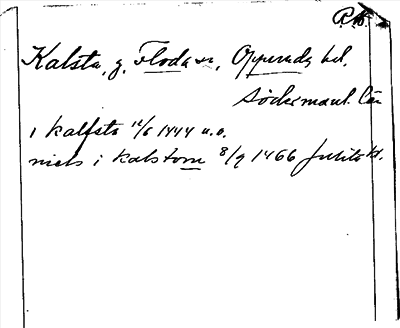 R.A.
Kalsta, g. Floda sn, Oppunda hd,
Södermanl. län
i kalfsta 12/6 1444 u.o.
niels i kalstom 8/9 1466 Julita kl.